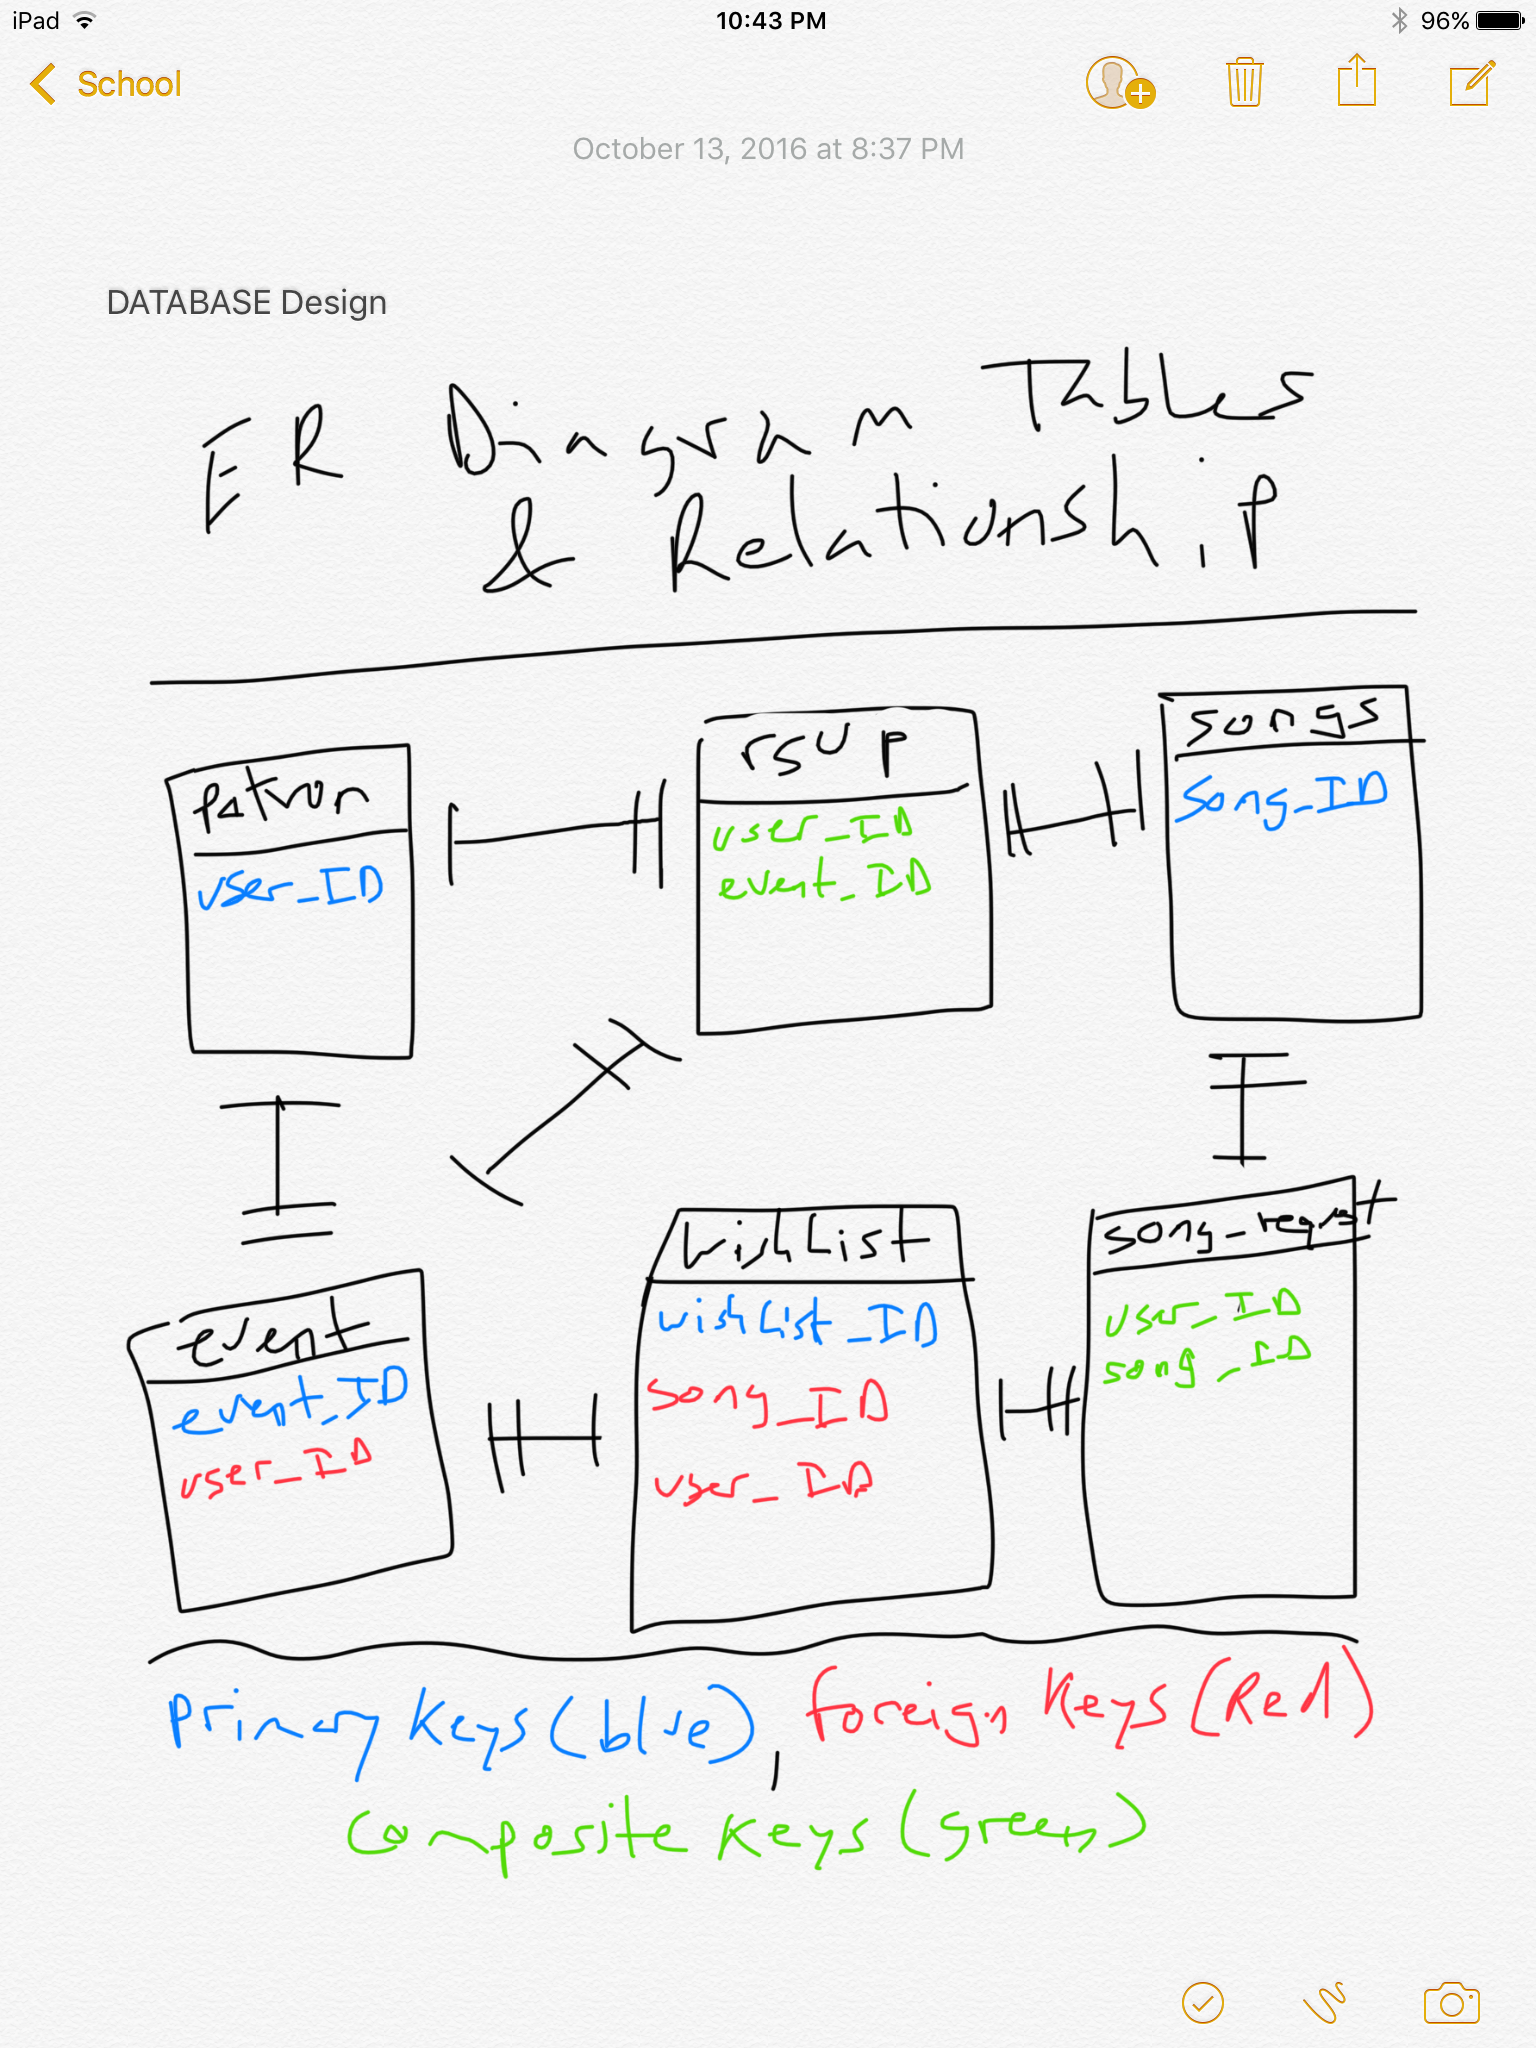 iPad 10:43 PM 96%
School
October 13, 2016 at 8:37 PM
DATABASE Design
ER Diagram Tables
& Relationship
patron
user_ID
rsvp
user_ID
event_ID
songs
song_ID
event
event_ID
user_ID
wishlist
wishlist_ID
song_ID
user_ID
song_reqest
user_ID
song_ID
Primary Keys (blue), foreign Keys (Red)
Composite Keys (green)